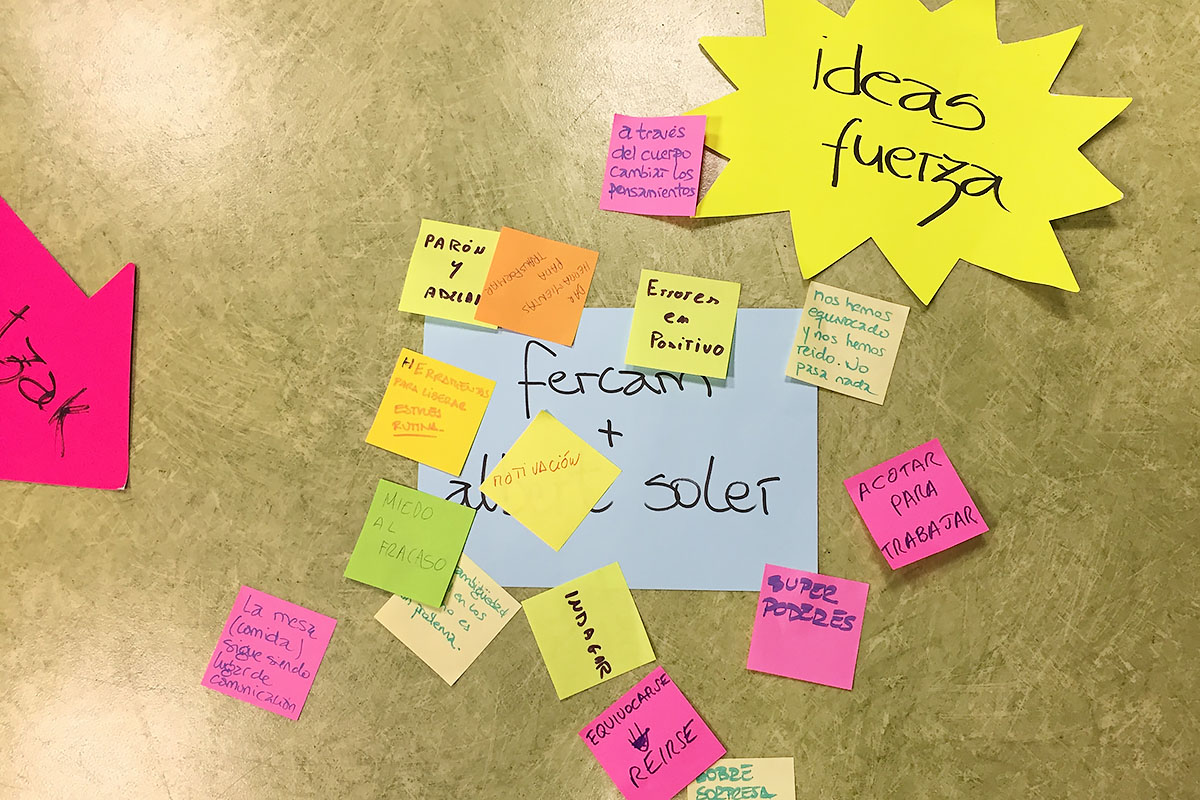 ideas
fuerza
a través
del cuerpo
cambiar los
pensamientos
PARÓN
Y
DAR
HERRAMIENTAS
PARA
TRANSFORMAR
Errores
en
Positivo
nos hemos
equivocado
y nos hemos
reído. No
pasa nada
tzak
HERRAMIENTAS
PARA LIBERAR
ESTRÉS
RUTINA.
fercam
+
soler
MOTIVACIÓN
MIEDO
AL
FRACASO
ambigüedad
en los
es
problema.
ACOTAR
PARA
TRABAJAR
SUPER
PODERES
INDAGAR
La mesa
(comida)
sigue siendo
lugar de
comunicación
EQUIVOCARSE
REIRSE
SOBRE
SORPRESA